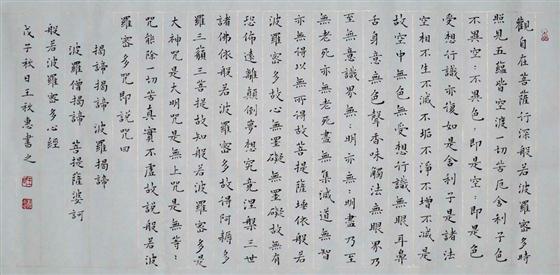 觀自在菩薩行深般若波羅密多時
照見五蘊皆空渡一切苦厄舍利子色
不異空:不異色:即是空:即是色
受想行識亦復如是舍利子是諸法
空相不生不滅不垢不淨不增不減是
故空中無色無受想行識無眼耳鼻
舌身意無色聲香味觸法無眼界乃
至無意識界無:明亦無:明盡乃至
無老死亦無老死盡無集滅道無智
亦無得以無所得故菩提薩埵依般若
波羅密多故心無罣礙無罣礙故無有
恐怖遠離顛倒夢想究竟涅槃三世
諸佛依般若波羅密多故得阿耨多
羅三藐三菩提故知般若波羅密多是
大神咒是大明咒是無上咒是無等:
咒能除一切苦真實不虛故說般若波
羅密多咒即說咒曰
揭諦揭諦 波羅揭諦
波羅僧揭諦 菩提薩婆訶
般若波羅密多心經
戊子秋日王秋惠書之